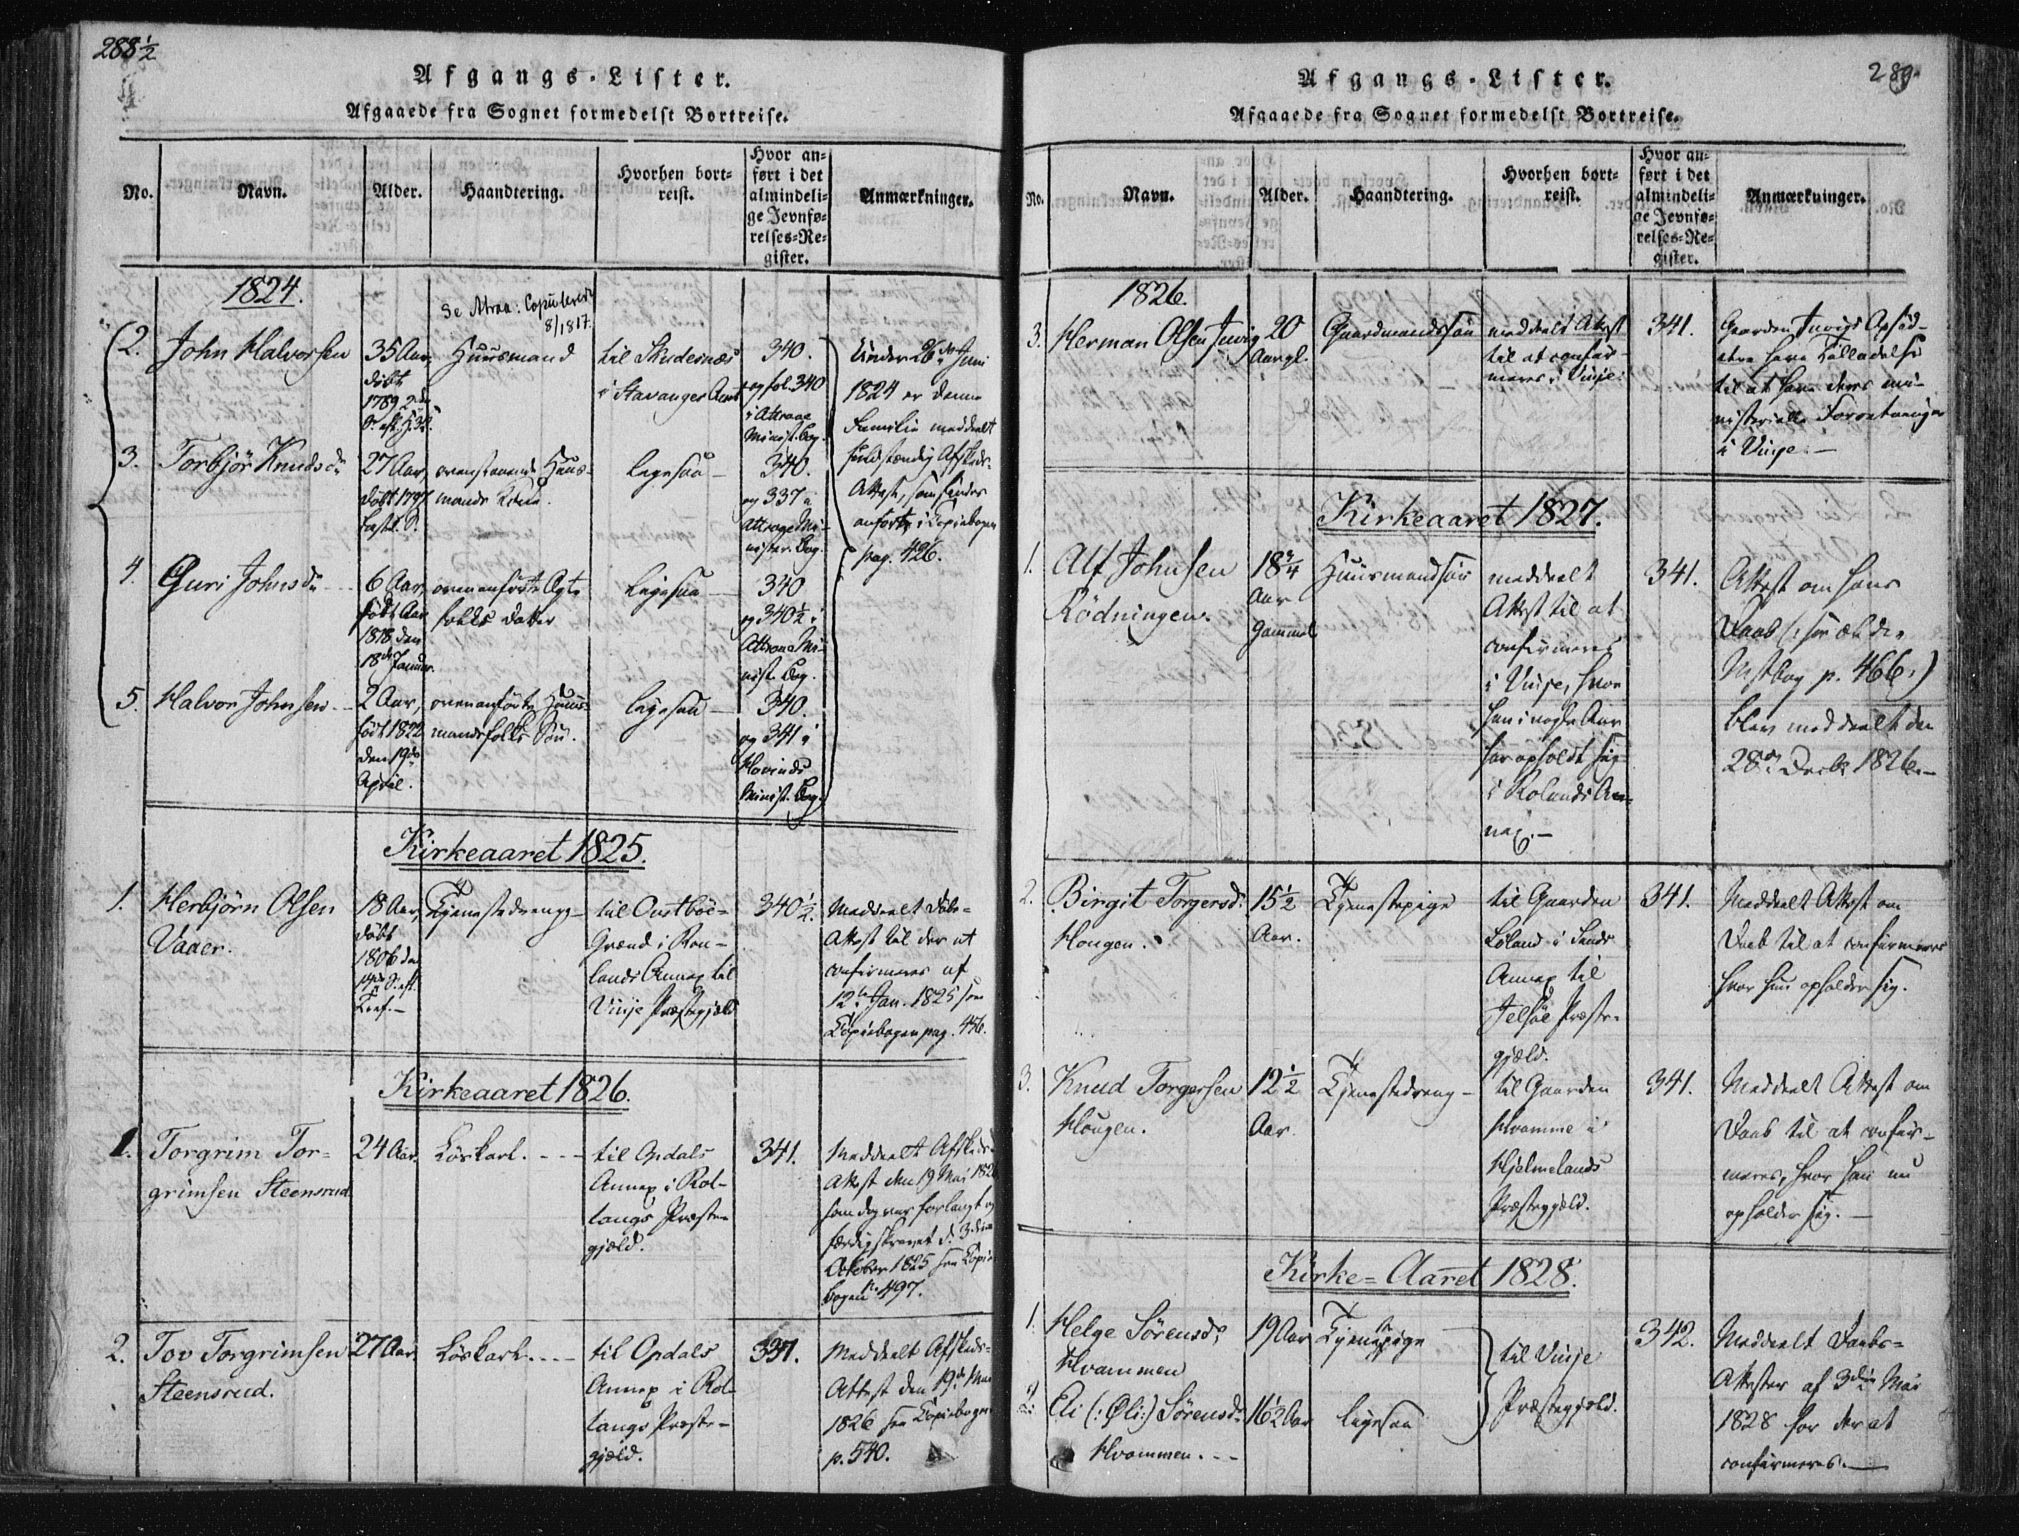 288½
Afgangs-Lister.
Afgaaede fra Sognet formedelst Bortreise.
No.
Navn.
Alder.
Haandtering.
Hvorhen bort-
reist.
Hvor an-
ført i det
almindeli-
ge Jevnfø-
relses-Re-
gister.
Anmærkninger.
1824.
Se Atraa: Copulerede
8/1817.
2. John Halvorsen
35 Aar,
døbt
1789 2den
Huusmand
til Skudesnæs
i Stavanger Amt
340.
og fol. 340
i Attraae
Minist. Bog.
Under 26de Juni
1824 er denne
Familie meddeelt
fuldstændig Afskeds-
Attest, som findes
anført i Copiebogen
pag. 426.
3. Torbjør Knudsdr
27 Aar,
døbt 1797
Fastel. S.
ovenstaaende Huus-
mands Kone.
ligesaa –
340.
og 337 i
Attraae Mi-
nister. Bog.
4. Guri Johnsdr
6 Aar,
født Aar
1818 den
18de Januar.
ovenanførte Ægte-
folks Datter
ligesaa –
340
og 340½ i
Attraae Mi-
nist. Bog.
5. Halvor Johnsen
2 Aar,
født 1822
den 19de
April.
ovenanførte Huus-
mandsfolks Søn.
ligesaa –
340.
og 341 i
Hovinds
Minist. Bog.
Kirkeaaret 1825.
1. Herbjörn Olsen
Vaaer.
18 Aar,
døbt
1806 den
19de S. eft.
Tref.–
Tjenestedreng –
til Oustböe-
Grænd i Rou-
lands Annex til
Vinje Præstegjæld
340½.
Meddeelt Döbe-
Attest til der at
confirmeres af
12te Jan. 1825 see
Copiebogen pag. 456.
Kirkeaaret 1826.
1. Torgrim Tor-
grimsen Steensrud
24 Aar.
Löskarl. - - -
til Opdals
Annex i Rol-
laugs Præste-
gjæld.
341.
Meddeelt Afskeds-
Attest den 19 Mai 1826
som dog var forlangt og
færdigskrevet d. 3die
October 1825 see Copie-
bogen p. 497.
2. Tov Torgrimsen
Steensrud.
27 Aar.
Löskarl. - - -
til Opdals
Annex i Rol-
laugs Præste-
gjæld.
337.
Meddeelt Afskeds-
Attest den 19de Mai
1826 see Copiebogen
p. 540.
289.
Afgangs-Lister.
Afgaaede fra Sognet formedelst Bortreise.
No.
Navn.
Alder.
Haandtering.
Hvorhen bort-
reist.
Hvor an-
ført i det
almindeli-
ge Jevnfø-
relses-Re-
gister.
Anmærkninger.
1826.
3. Herman Olsen Juvig
20
Aar gl.
Gaardmandssön
meddeelt Attest
til at confir-
meres i Vinje.
341.
Gaarden Juvigs Opsid-
dere have Tilladelse
til at have deres mi-
nisterielle Forretninger
i Vinje. –
Kirkeaaret 1827.
1. Alf Johnsen
Rödningen.
18¾
Aar
Gammel
Huusmandssön
meddeelt
Attest til at
confirmeres
i Vinje, hvor
han i nogle Aar
har opholdt sig
i Rolands An-
nex. –
341.
Attest om hans
Daab (: see ældre
Mstbog p. 466:)
blev meddeelt den
28de Decbr 1826. –
2. Birgit Torgersdr
Hougen.
15½
Aar.
Tjenestepige
til Gaarden
Löland i Sands
Annex til
Jelsöe Præste-
gjæld.
341.
Meddeelt Attest om
Daab til at confirmeres
hvor hun opholder sig.
3. Knud Torgersen
Hougen.
12½
Aar.
Tjenestedreng –
til Gaarden
Hvamme i
Hjelmelands
Præstegjæld.
341.
Meddeelt Attest om
Daab til at confir-
meres, hvor han nu
opholder sig. –
Kirke=Aaret 1828.
1. Helge Sörensdr
Hvammen
19 Aar
Tjenstpige
til Vinje
Præstegjæld.
342.
Meddeelt Daabs-
Attester af 3die Mai
1828 for der at
confirmeres. –
2. Eli (: Øli:) Sörensdr
Hvammen. - -
16½ Aar
ligesaa